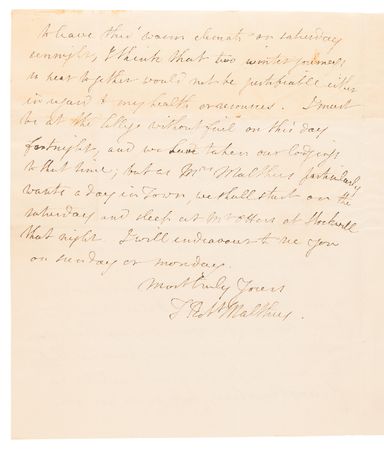 to leave this warm climate on Saturday
sennight, I think that two winter journeys
so near together would not be justifiable either
in regard to my health or resources. I must
be at the College without fail on this day
fortnight, and we have taken our lodgings
to that time; but as Mrs Malthus particularly
wants a day in Town, we shall start on the
Saturday and sleep at Mr at Stockwell
that night. I will endeavour to see you
on sunday or monday.
Most truly Yours
T Robt Malthus.